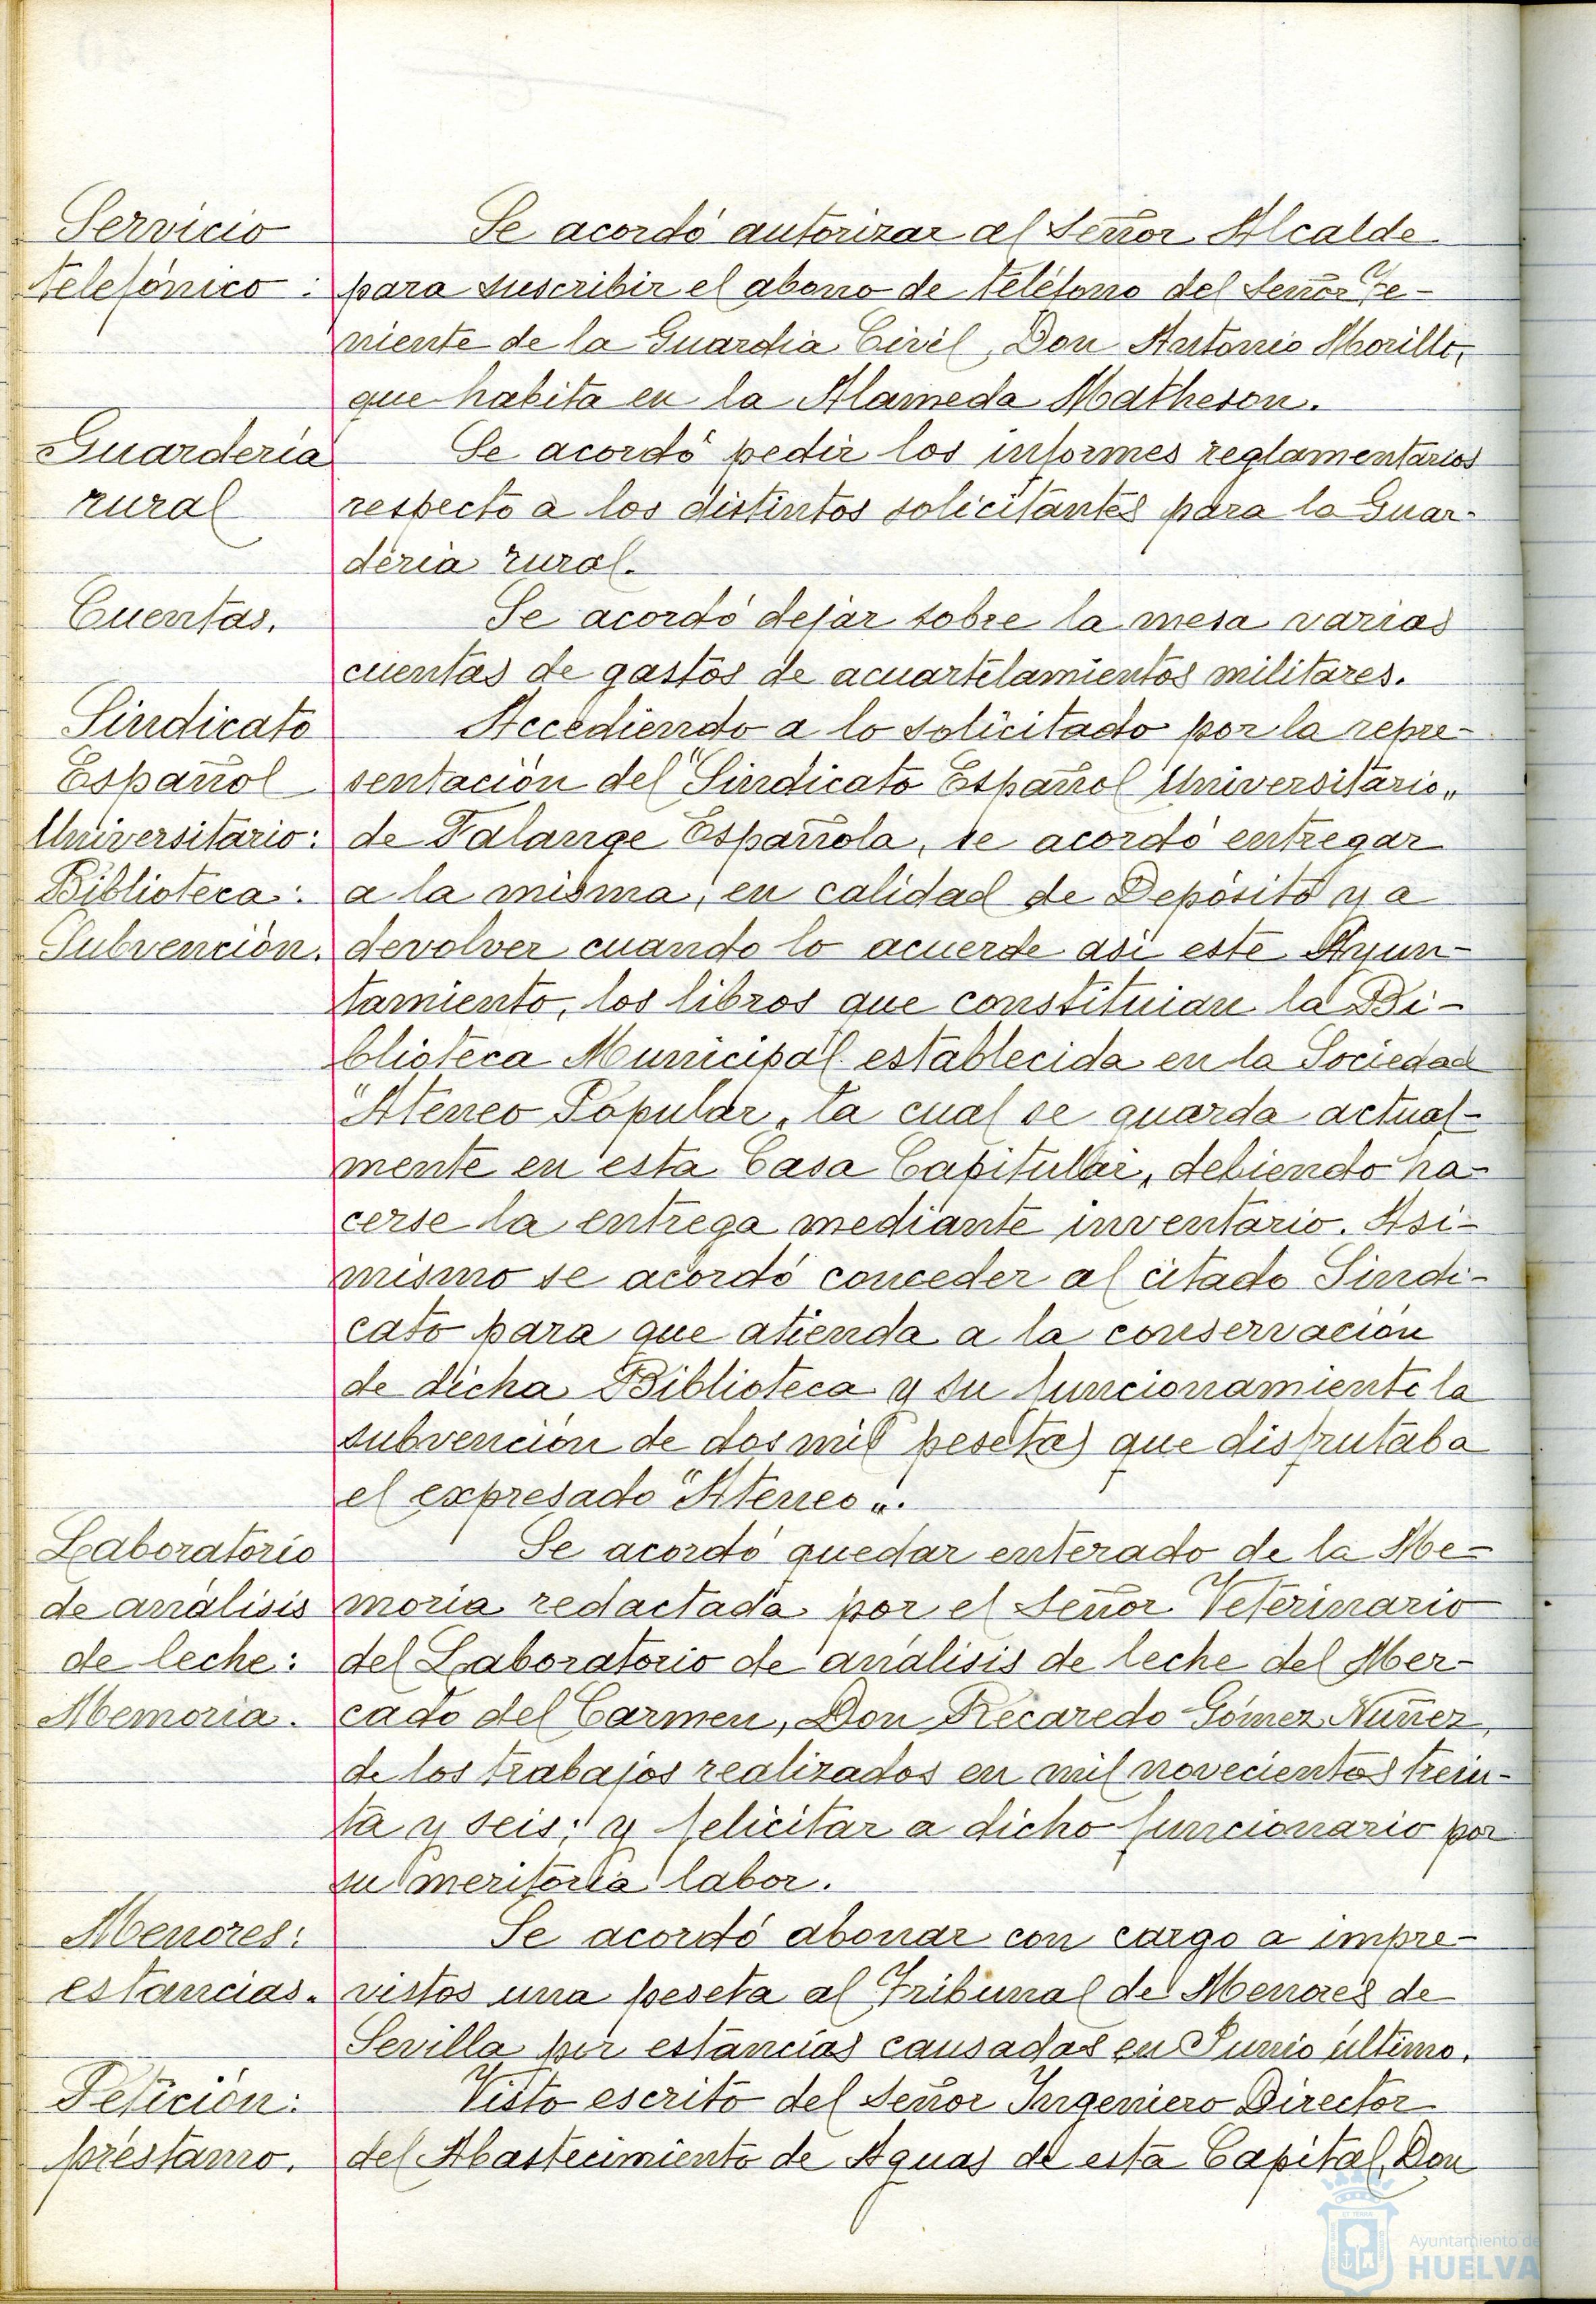 Servicio
telefónico:
Se acordó autorizar al Señor Alcalde
para suscribir el abono de teléfono del Señor Te-
niente de la Guardia Civil, Don Antonio Morillo,
que habita en la Alameda Matheson.
Guarderia
rural
Se acordó pedir los informes reglamentarios
respecto a los distintos solicitantes para la Guar-
deria rural.
Cuentas.
Se acordó dejar sobre la mesa varias
cuentas de gastos de acuartelamientos militares.
Sindicato
Español
Universitario:
Biblioteca:
Subvención.
Accediendo a lo solicitado por la repre-
sentación del "Sindicato Español Universitario"
de Falange Española, se acordó entregar
a la misma, en calidad de Depósito y a
devolver cuando lo acuerde asi este Ayun-
tamiento, los libros que constituian la Bi-
blioteca Municipal establecida en la Sociedad
"Ateneo Popular" la cual se guarda actual-
mente en esta Casa Capitular, debiendo ha-
cerse la entrega mediante inventario. Asi-
mismo se acordó conceder al citado Sindi-
cato para que atienda a la conservación
de dicha Biblioteca y su funcionamiento la
subvención de dos mil pesetas que disfrutaba
el expresado "Ateneo".
Laboratorio
de análisis
de leche:
Memoria.
Se acordó quedar enterado de la Me-
moria redactada por el Señor Veterinario
del Laboratorio de análisis de leche del Mer-
cado del Carmen, Don Recaredo Gómez Nuñez,
de los trabajos realizados en mil novecientos trein-
ta y seis; y felicitar a dicho funcionario por
su meritoria labor.
Menores:
estancias.
Se acordó abonar con cargo a impre-
vistos una peseta al Tribunal de Menores de
Sevilla por estancias causadas en Junio último.
Petición:
préstamo.
Visto escrito del Señor Ingeniero Director
del Abastecimiento de Aguas de esta Capital, Don
Ayuntamiento de
HUELVA